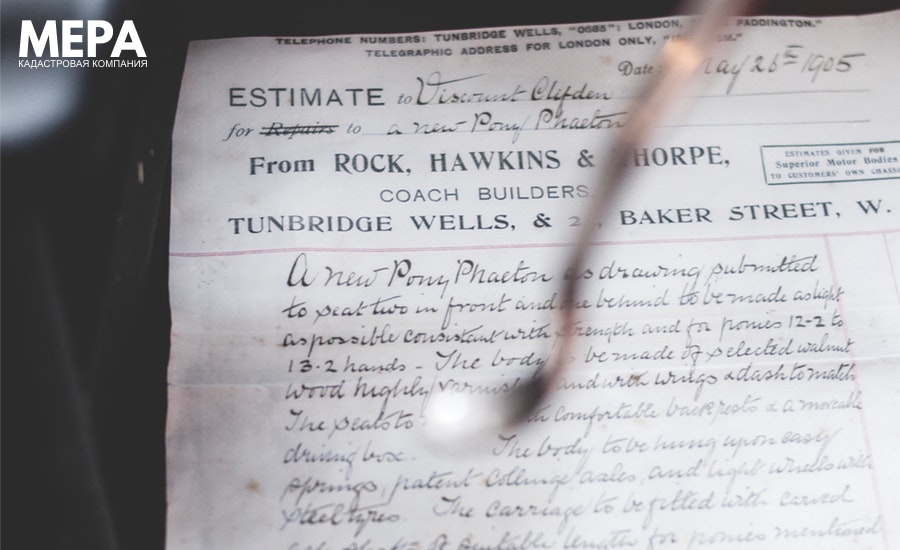 МЕРА
КАДАСТРОВАЯ КОМПАНИЯ
TELEPHONE NUMBERS: TUNBRIDGE WELLS, "0685"; LONDON, PADDINGTON."
TELEGRAPHIC ADDRESS FOR LONDON ONLY,
Date: May 26th 1905
ESTIMATE to Viscount Clifden
for Repairs to a new Pony Phaeton
From ROCK, HAWKINS & THORPE,
ESTIMATES GIVEN FOR
Superior Motor Bodies
TO CUSTOMERS' OWN CHASSIS
COACH BUILDERS,
TUNBRIDGE WELLS, & BAKER STREET, W.
A new Pony Phaeton as drawing submitted
to seat two in front and one behind to be made as light
as possible consistant with strength and for ponies 12-2 to
13-2 hands - The body to be made of selected walnut
wood highly varnished and with wings & dash to match
The seats to with comfortable back rests & a moveable
driving box. The body to be hung upon easy
springs, patent Collinge axles, and light wheels with
steel tyres. The carriage to be fitted with carved
ash shafts of suitable length for ponies mentioned